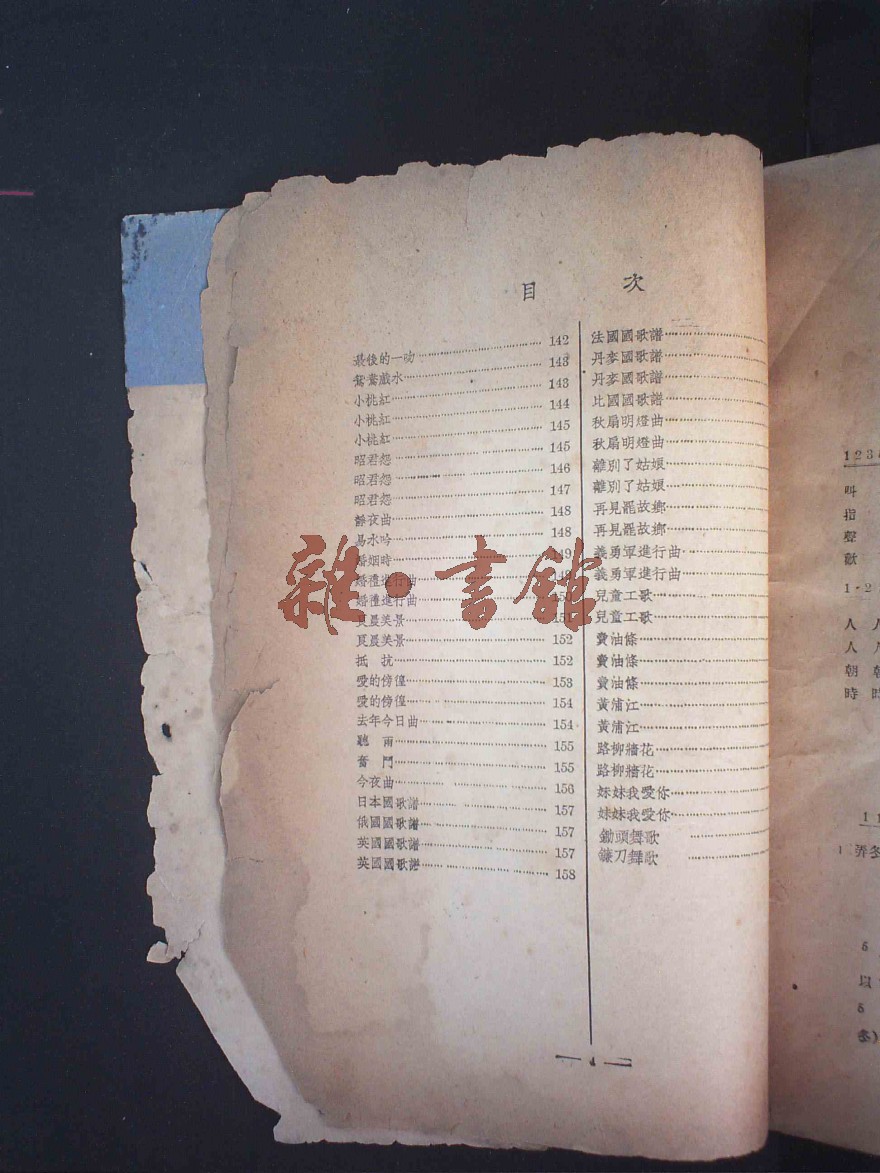 目 次
最後的一吻 142
鴛鴦戲水 143
小桃紅 143
小桃紅 144
小桃紅 145
昭君怨 145
昭君怨 146
昭君怨 147
靜夜曲 148
易水吟 148
婚姻時 149
婚禮進行曲 149
婚禮進行曲
良晨美景 151
良晨美景 152
抵 抗 152
愛的傍徨 153
愛的傍徨 154
去年今日曲 154
聽 雨 155
奮 鬥 155
今夜曲 156
日本國歌譜 157
俄國國歌譜 157
英國國歌譜 157
英國國歌譜 158
法國國歌譜
丹麥國歌譜
丹麥國歌譜
比國國歌譜
秋扇明燈曲
秋扇明燈曲
離別了姑娘
離別了姑娘
再見罷故鄉
再見罷故鄉
義勇軍進行曲
義勇軍進行曲
兒童工歌
兒童工歌
賣油條
賣油條
賣油條
黃浦江
黃浦江
路柳牆花
路柳牆花
妹妹我愛你
妹妹我愛你
鋤頭舞歌
鐮刀舞歌
— 4 —
雜·書館
1 2 3
叫
指
聲
獻
1 · 2
人
人
朝
時
1 1
1 弄冬
5
以
5
冬)